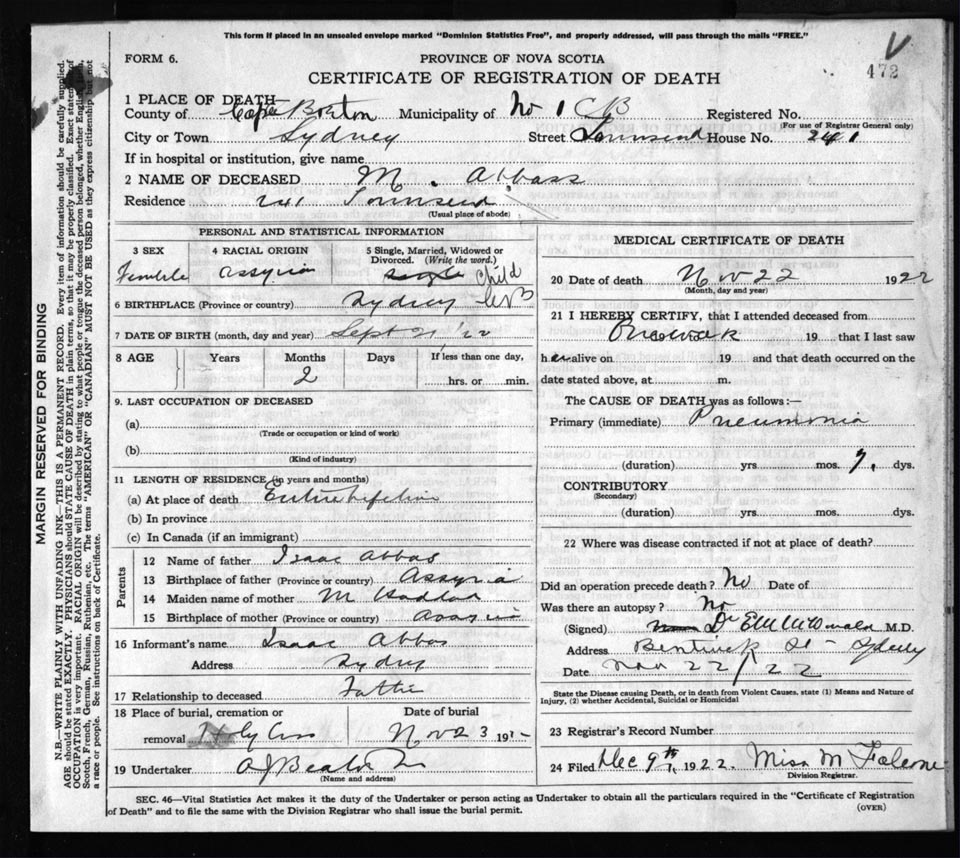 This form if placed in an unsealed envelope marked "Dominion Statistics Free", and properly addressed, will pass through the mails "FREE."
FORM 6.
PROVINCE OF NOVA SCOTIA
472
CERTIFICATE OF REGISTRATION OF DEATH
1 PLACE OF DEATH
County of Cape Breton Municipality of No 1 CB Registered No.
(For use of Registrar General only)
City or Town Sydney Street Townsend House No. 241
If in hospital or institution, give name
2 NAME OF DECEASED M. Abbass
Residence 241 Townsend
(Usual place of abode)
PERSONAL AND STATISTICAL INFORMATION
3 SEX 4 RACIAL ORIGIN 5 Single, Married, Widowed or Divorced. (Write the word.)
Female Assyria single Child
6 BIRTHPLACE (Province or country) Sydney CB
7 DATE OF BIRTH (month, day and year) Sept 21 '22
8 AGE Years Months Days If less than one day,
2 hrs. or min.
9. LAST OCCUPATION OF DECEASED
(a)
(Trade or occupation or kind of work)
(b)
(Kind of industry)
11 LENGTH OF RESIDENCE (in years and months)
(a) At place of death Entire lifetime
(b) In province
(c) In Canada (if an immigrant)
Parents
12 Name of father Isaac Abbas
13 Birthplace of father (Province or country) Assyria
14 Maiden name of mother M Haddad
15 Birthplace of mother (Province or country)
16 Informant's name Isaac Abbas
Address Sydney
17 Relationship to deceased Father
18 Place of burial, cremation or removal Holy Cross
Date of burial Nov 23 19
19 Undertaker
(Name and address)
MEDICAL CERTIFICATE OF DEATH
20 Date of death Nov 22 1922
(Month, day and year)
21 I HEREBY CERTIFY, that I attended deceased from
19 that I last saw
h er alive on 19 and that death occurred on the
date stated above, at m.
The CAUSE OF DEATH was as follows:—
Primary (immediate) Pneumonia
(duration) yrs mos. 7. dys.
CONTRIBUTORY
(Secondary)
(duration) yrs. mos. dys.
22 Where was disease contracted if not at place of death?
Did an operation precede death? No Date of
Was there an autopsy? No
(Signed) Dr M.D.
Address Bentinck St - Sydney
Date Nov 22 / 22
State the Disease causing Death, or in death from Violent Causes, state (1) Means and Nature of Injury, (2) whether Accidental, Suicidal or Homicidal
23 Registrar's Record Number
24 Filed Dec 9th, 1922. Miss M
Division Registrar.
SEC. 46—Vital Statistics Act makes it the duty of the Undertaker or person acting as Undertaker to obtain all the particulars required in the "Certificate of Registration
of Death" and to file the same with the Division Registrar who shall issue the burial permit.
(OVER)
MARGIN RESERVED FOR BINDING
N.B.—WRITE PLAINLY WITH UNFADING INK—THIS IS A PERMANENT RECORD. Every item of information should be carefully supplied.
AGE should be stated EXACTLY. PHYSICIANS should STATE CAUSE OF DEATH in plain terms, so that it may be properly classified. Exact statement of
OCCUPATION is very important. RACIAL ORIGIN will be described by stating to what people or tongue the deceased person belonged, whether English,
Scotch, French, German, Russian, Ruthenian, etc. The terms "AMERICAN" OR "CANADIAN" MUST NOT BE USED as they express citizenship but not
a race or people. See instructions on back of Certificate.